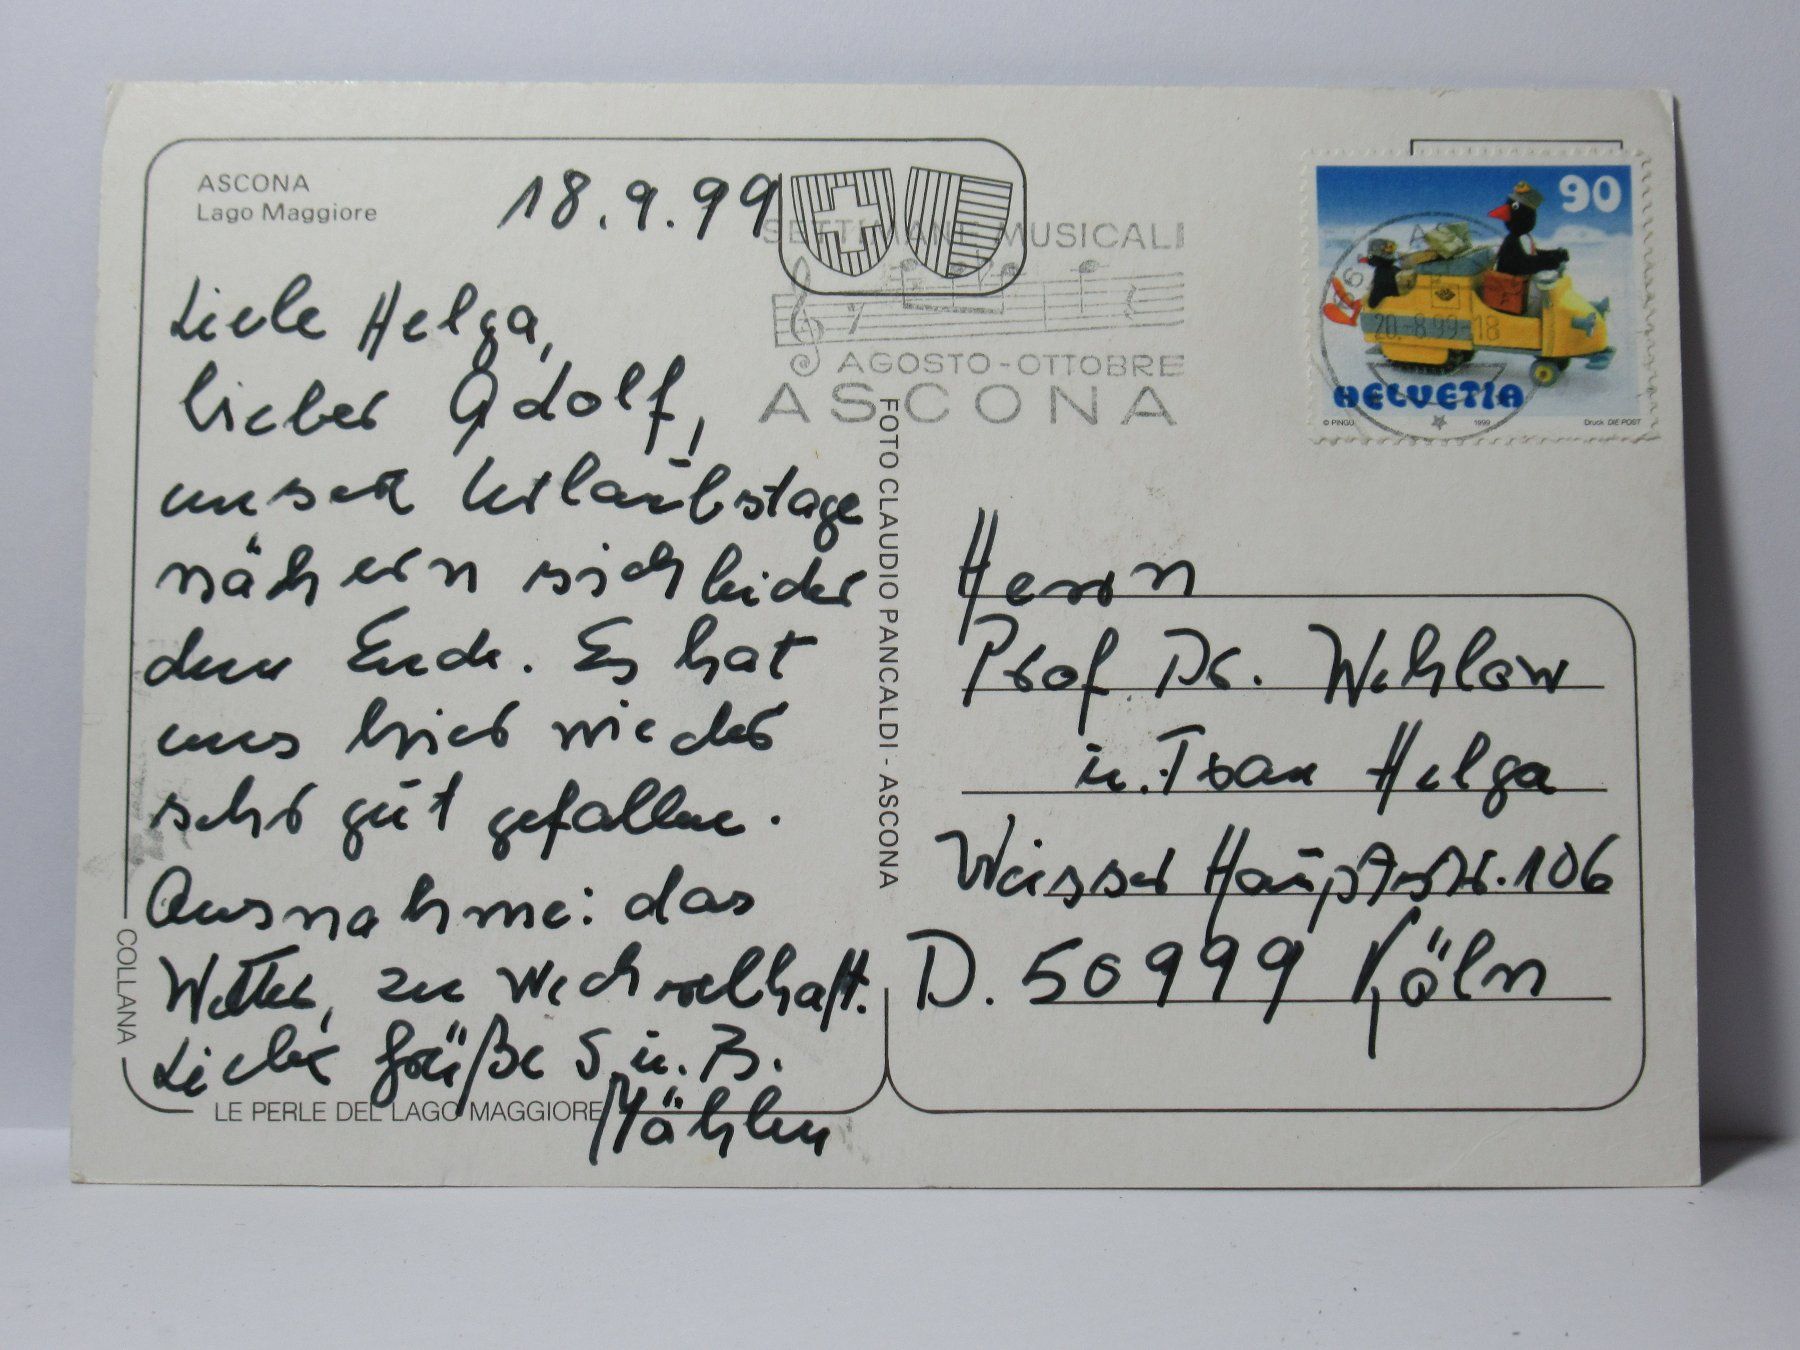 ASCONA
Lago Maggiore
18.9.99
Liebe Helga,
lieber Adolf,
unsere Urlaubstage
nähern sich leider
dem Ende. Es hat
uns hier wieder
sehr gut gefallen.
Ausnahme: das
Wetter, zu wechselhaft.
Liebe Grüße S u. B.
Mählen
COLLANA
LE PERLE DEL LAGO MAGGIORE
FOTO CLAUDIO PANCALDI - ASCONA
SETTIMANE MUSICALI
AGOSTO - OTTOBRE
ASCONA
90
20.-8.99-18
HELVETIA
© PINGU 1999 Druck DIE POST
Herrn
Prof Dr. Wehlow
u. Frau Helga
Weisser Hauptstr. 106
D. 50999 Köln